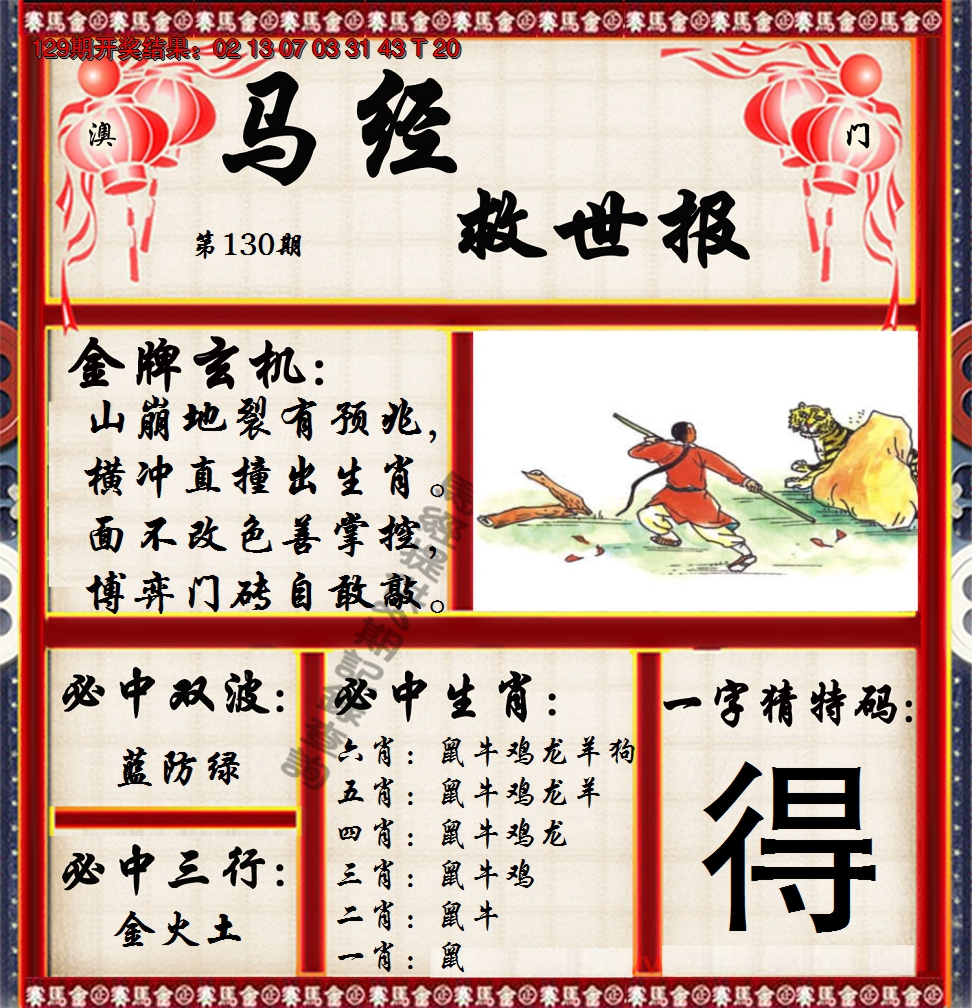 129期开奖结果：02 13 07 03 31 43 T 20
澳 门
马经
救世报
第130期
金牌玄机：
山崩地裂有预兆，
横冲直撞出生肖。
面不改色善掌控，
博弈门砖自敢敲。
必中双波：
蓝防绿
必中三行：
金火土
必中生肖：
六肖：鼠牛鸡龙羊狗
五肖：鼠牛鸡龙羊
四肖：鼠牛鸡龙
三肖：鼠牛鸡
二肖：鼠牛
一肖：鼠
一字猜特码：
得